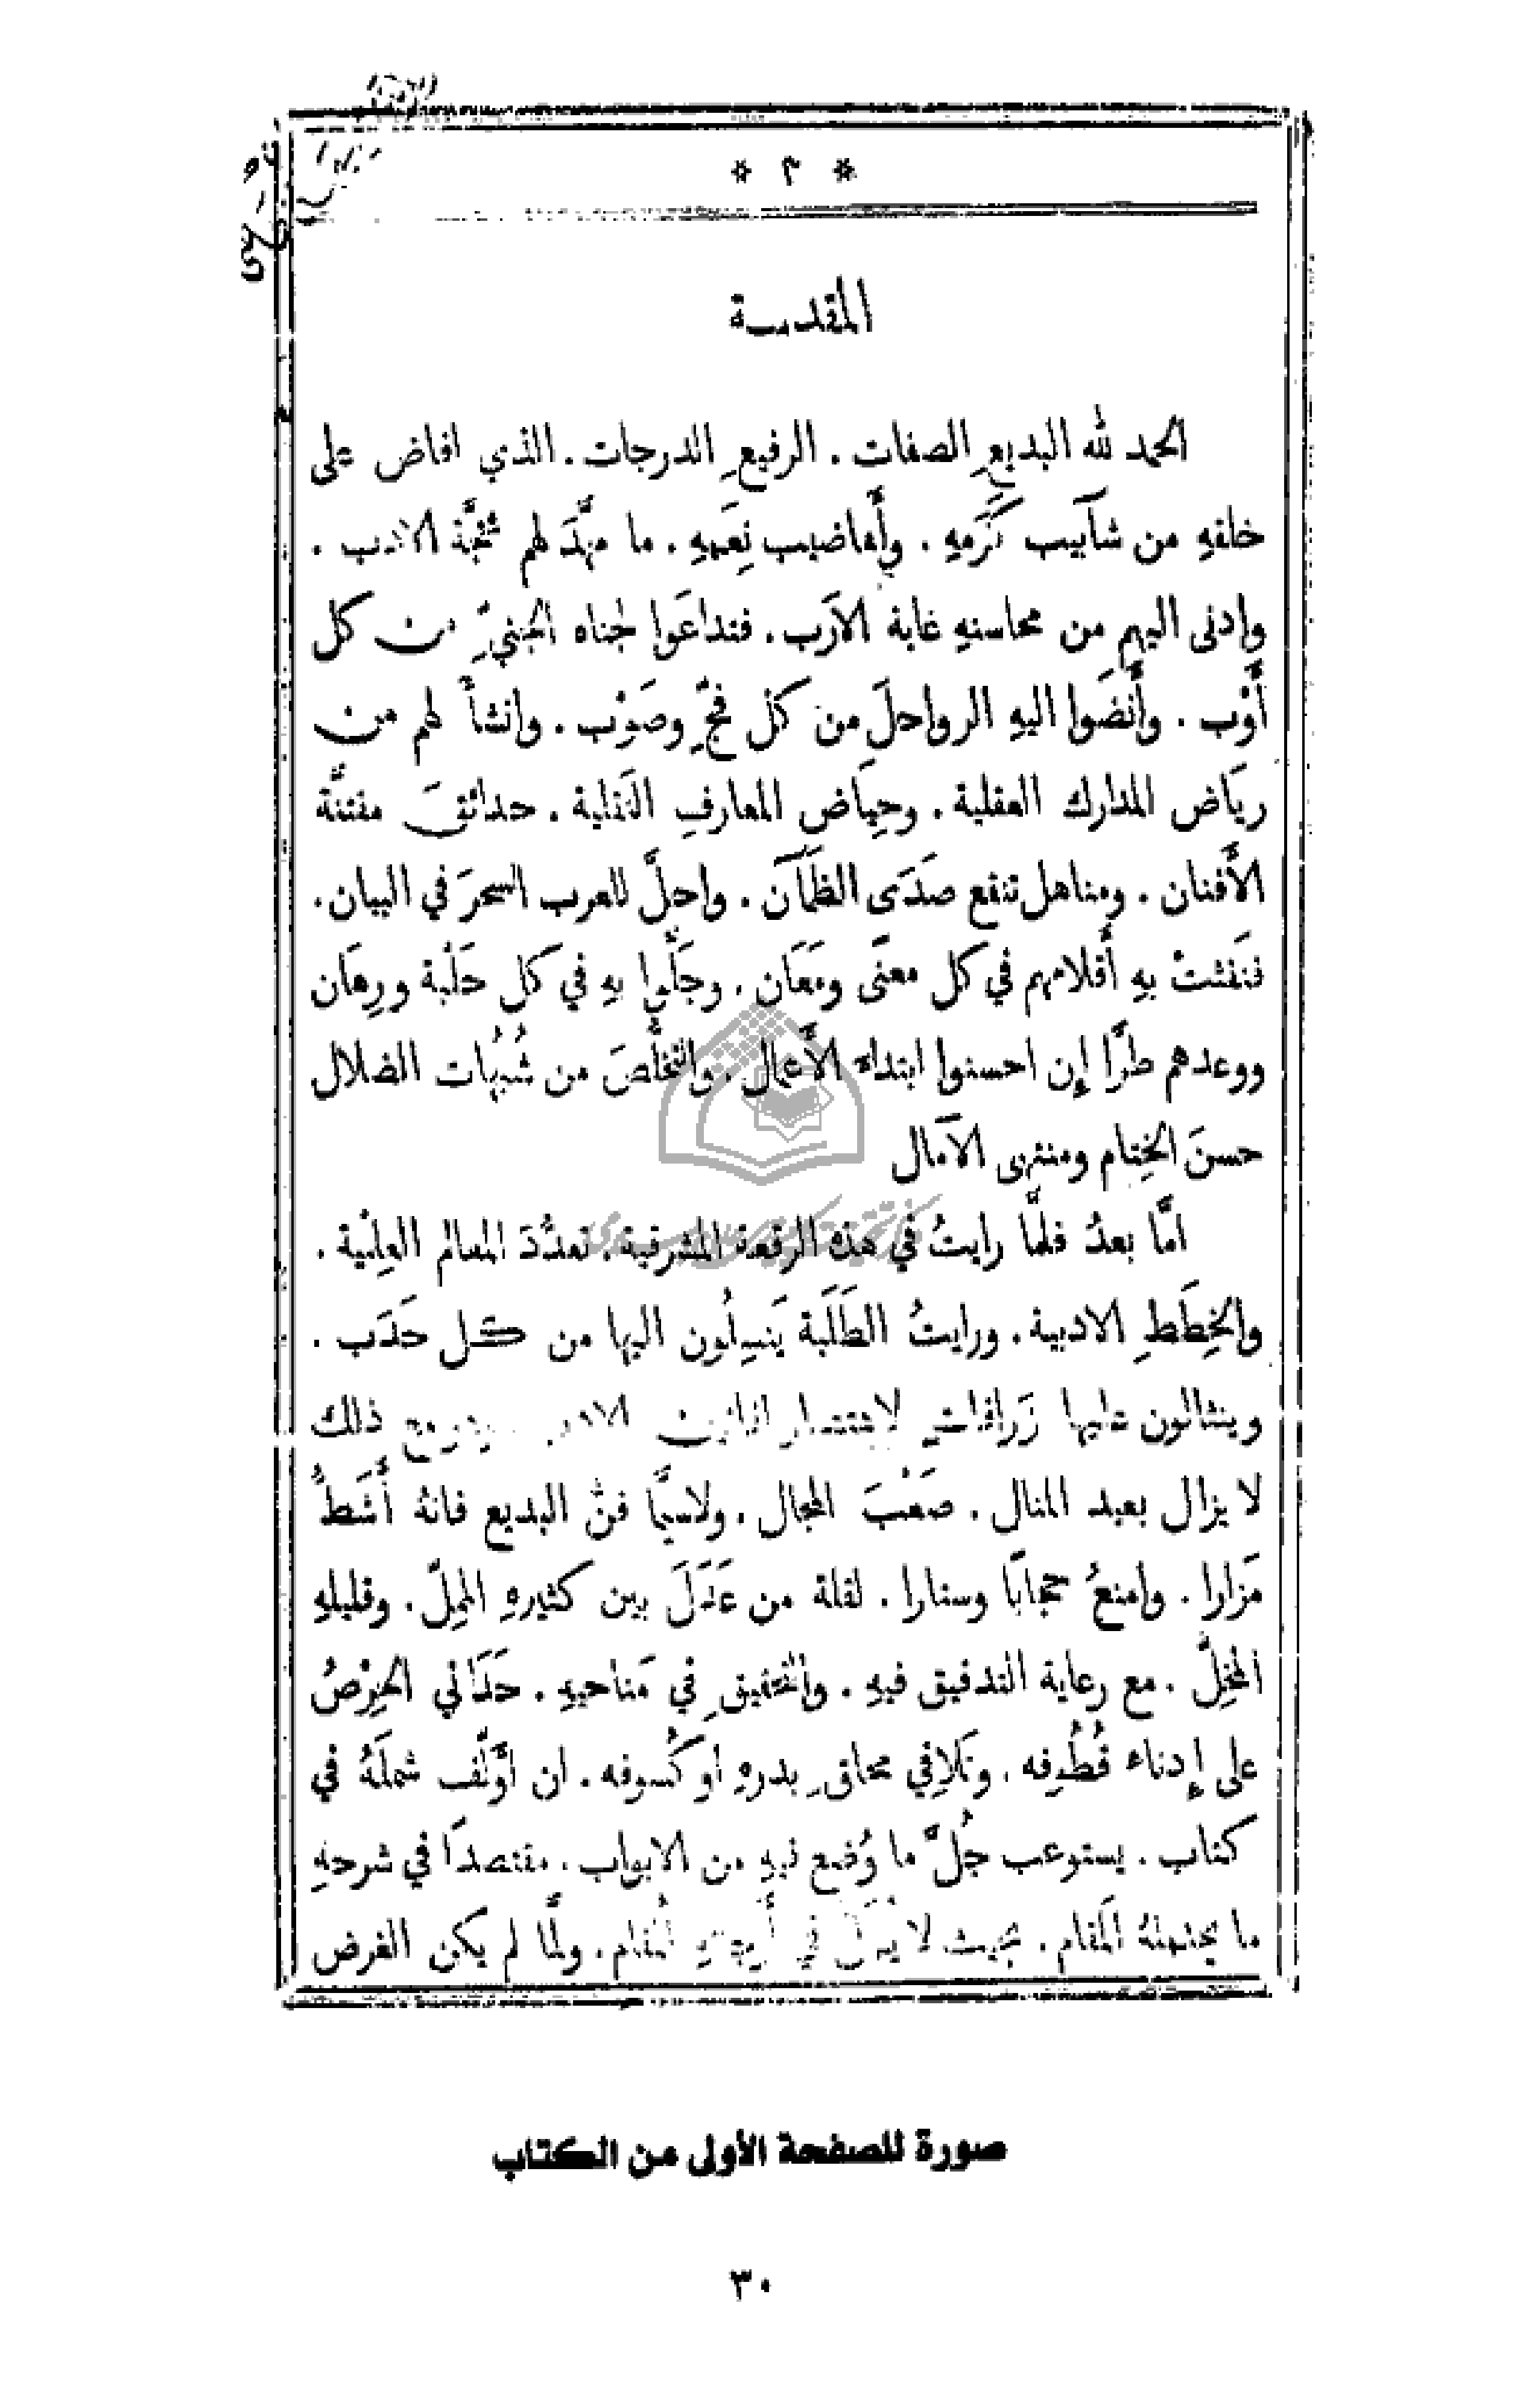 * ٣ *
المقدمة
الحمد لله البديعِ الصفات . الرفيعِ الدرجات . الذي افاض على
خلقهِ من شآبيب كَرَمهِ . وأَفاضيب نِعَمهِ . ما مهَّدَ لهم محجَّة الادب .
وادنى اليهم من محاسنهِ غاية الأَرَب . فتداعَوا لجناه الجنيِّ من كل
أَوْب . وأَنضَوا اليهِ الرواحلَ من كل فجٍّ وصَوْب . وانشأَ لهم من
رِيَاض المدارك العقلية . وحِيَاض المعارفِ النَقلية . حدائقَ مفتنَّة
الأَفنان . ومناهل تنقع صَدَى الظَمآن . واحلَّ للعرب السحرَ في البيان .
فنَفَثتْ بهِ أَقلامهم في كل معنًى ومَعَان . وجَلَّوا بهِ في كل حَلْبة ورِهَان
ووعدهم طرًّا إِن احسنوا ابتداء الأَعمال . والتخلُّصَ من شُبُهات الضلال
حسنَ الخِتام ومنتهى الآمال
امَّا بعدُ فلمَّا رايتُ في هذه الرقعة المشرقية . تعدُّدَ المعالم العِلْمية .
والخِطَطِ الادبية . ورايتُ الطَلَبة يَنسِلُون اليها من كـل حَدَب .
وينثالون عليها زَرافاتٍ لاقتباس افانين الادب ومع ذلك
لا يزال بعيد المنال . صَعْبَ المجال . ولاسيَّما فنُّ البديع فانهُ أَشَطُّ
مَزارا . وامنعُ حجابًا وستارا . لقلة من عَدَلَ بين كثيرهِ المُمِلّ . وقليلهِ
المُخِلّ . مع رعاية التدقيق فيهِ . والتحقيقِ في مَناحيهِ . حَدَاني الحِرْصُ
على إِدناء قُطُوفه . وتَلافي محاقِ بدرهِ او كُسوفه . ان أُؤلِّف شملَهُ في
كتاب . يستوعب جُلَّ ما وُضع فيهِ من الابواب . مقتصدًا في شرحهِ
ما يحتملهُ المَقام . بحيث لا للمقام . ولمَّا لم يكن الغرض
صورة للصفحة الأولى من الكتاب
٣٠